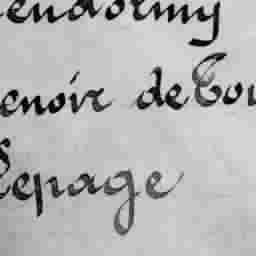 endormy
enoir de Tou
Lepage